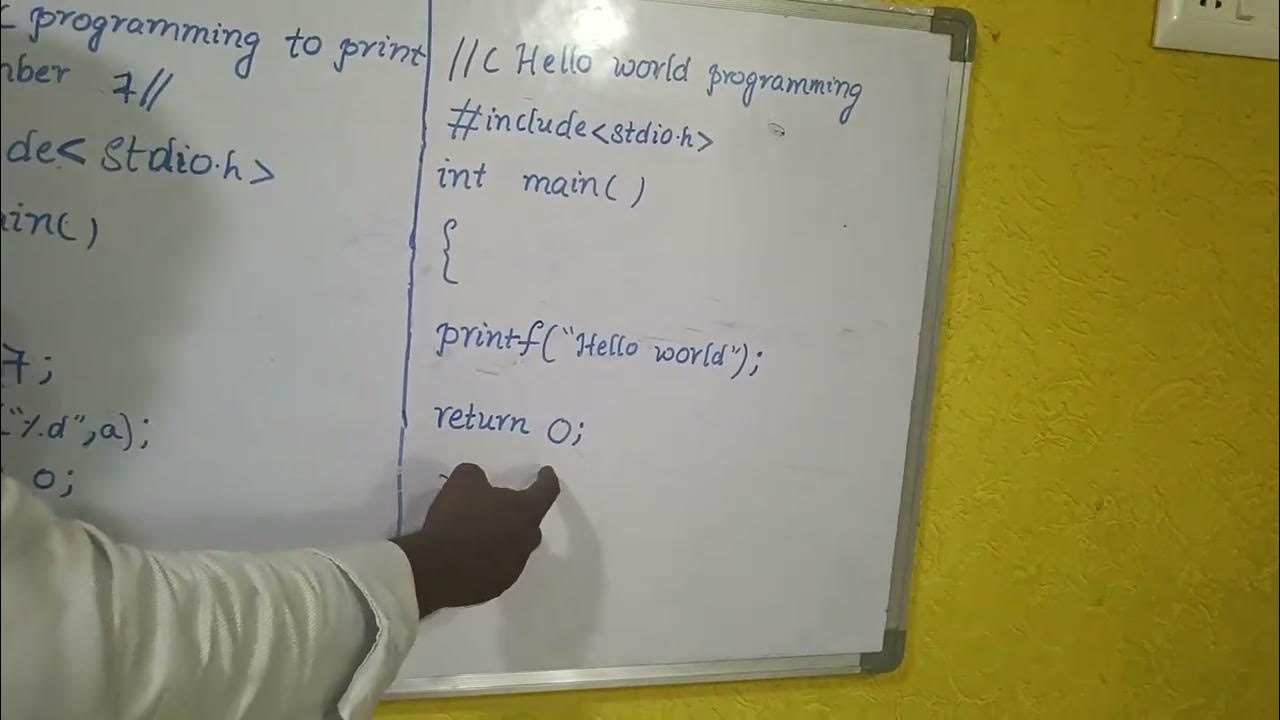 programming to print
nber 7//
de<stdio.h>
ain()
7;
("%d",a);
0;
//C Hello world programming
#include<stdio.h>
int main()
{
printf("Hello world");
return 0;